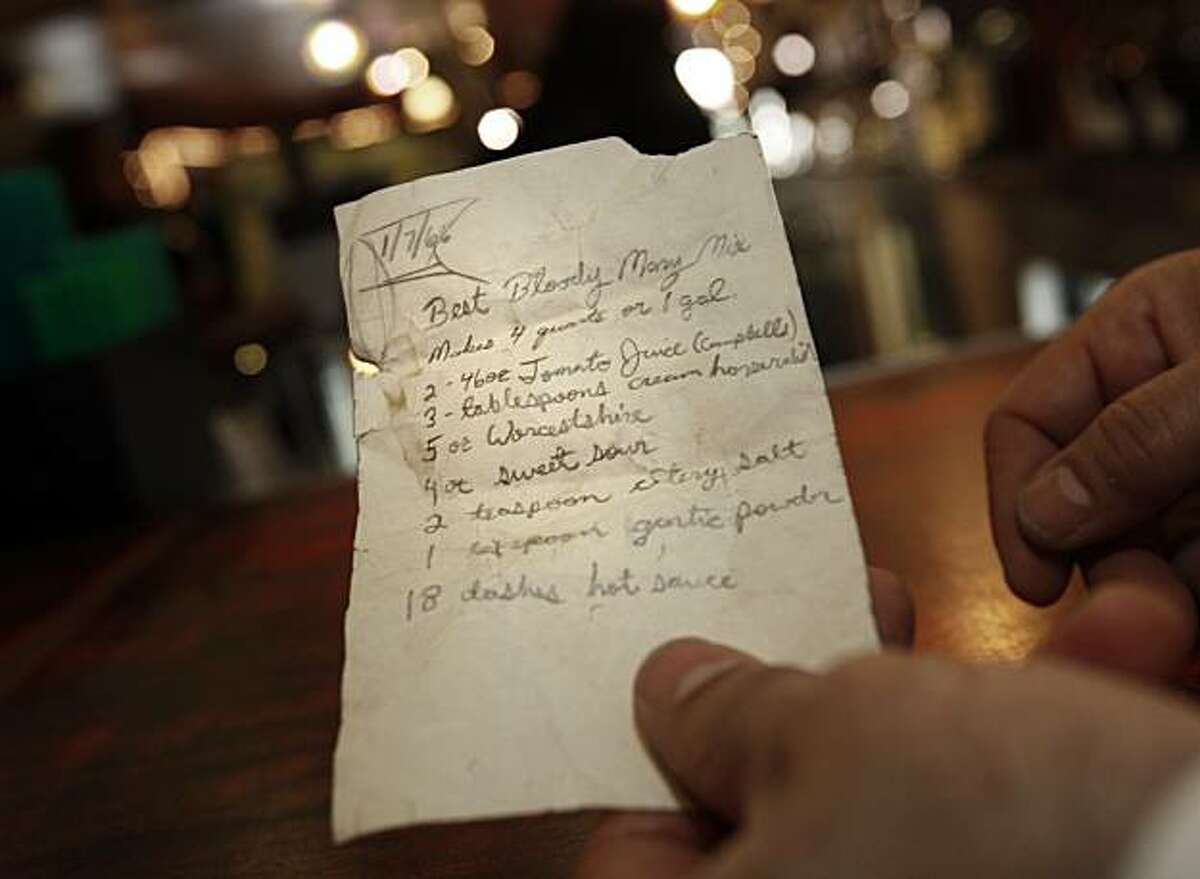 1/7/66
Best Bloody Mary Mix
Makes 4 quarts or 1 gal.
2 - 46oz Tomato Juice (Campbells)
3 - tablespoons cream horseradish
5 oz Worcestshire
4 oz sweet sour
2 teaspoon celery salt
1 teaspoon garlic powder
18 dashes hot sauce